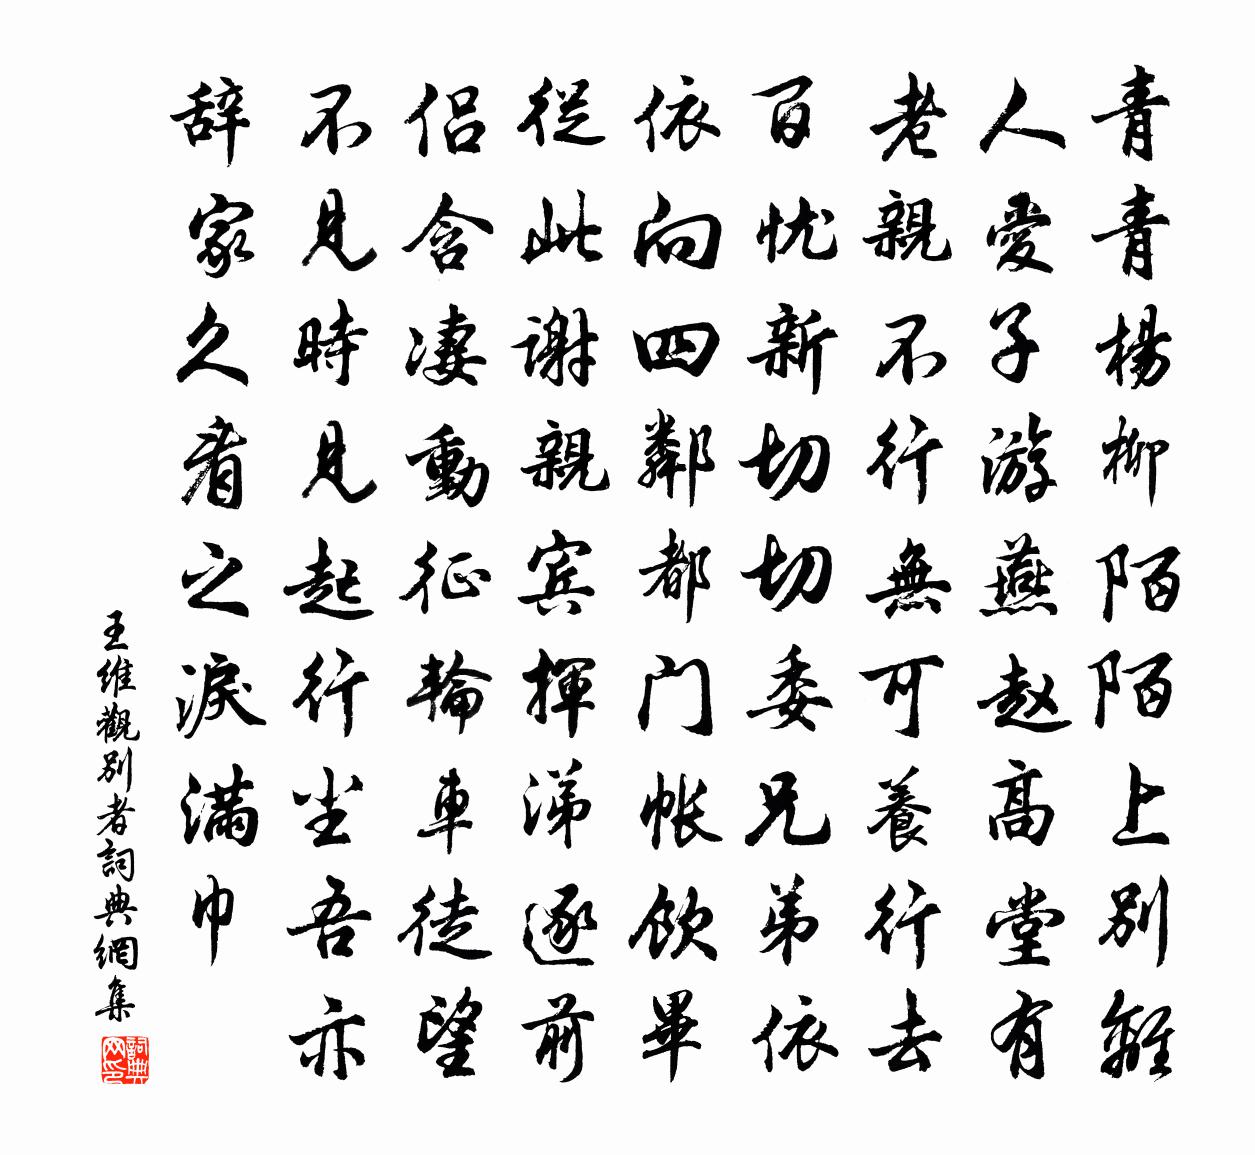 青青楊柳陌陌上別離
人愛子游燕赵高堂有
老親不行無可養行去
百忧新切切委兄弟依
依向四鄰都门帐饮畢
從此謝親宾揮涕逐前
侶含凄動征輪車徒望
不見時見起行尘吾亦
辞家久看之淚滿巾
王維觀別者詞典網集
詞典网印